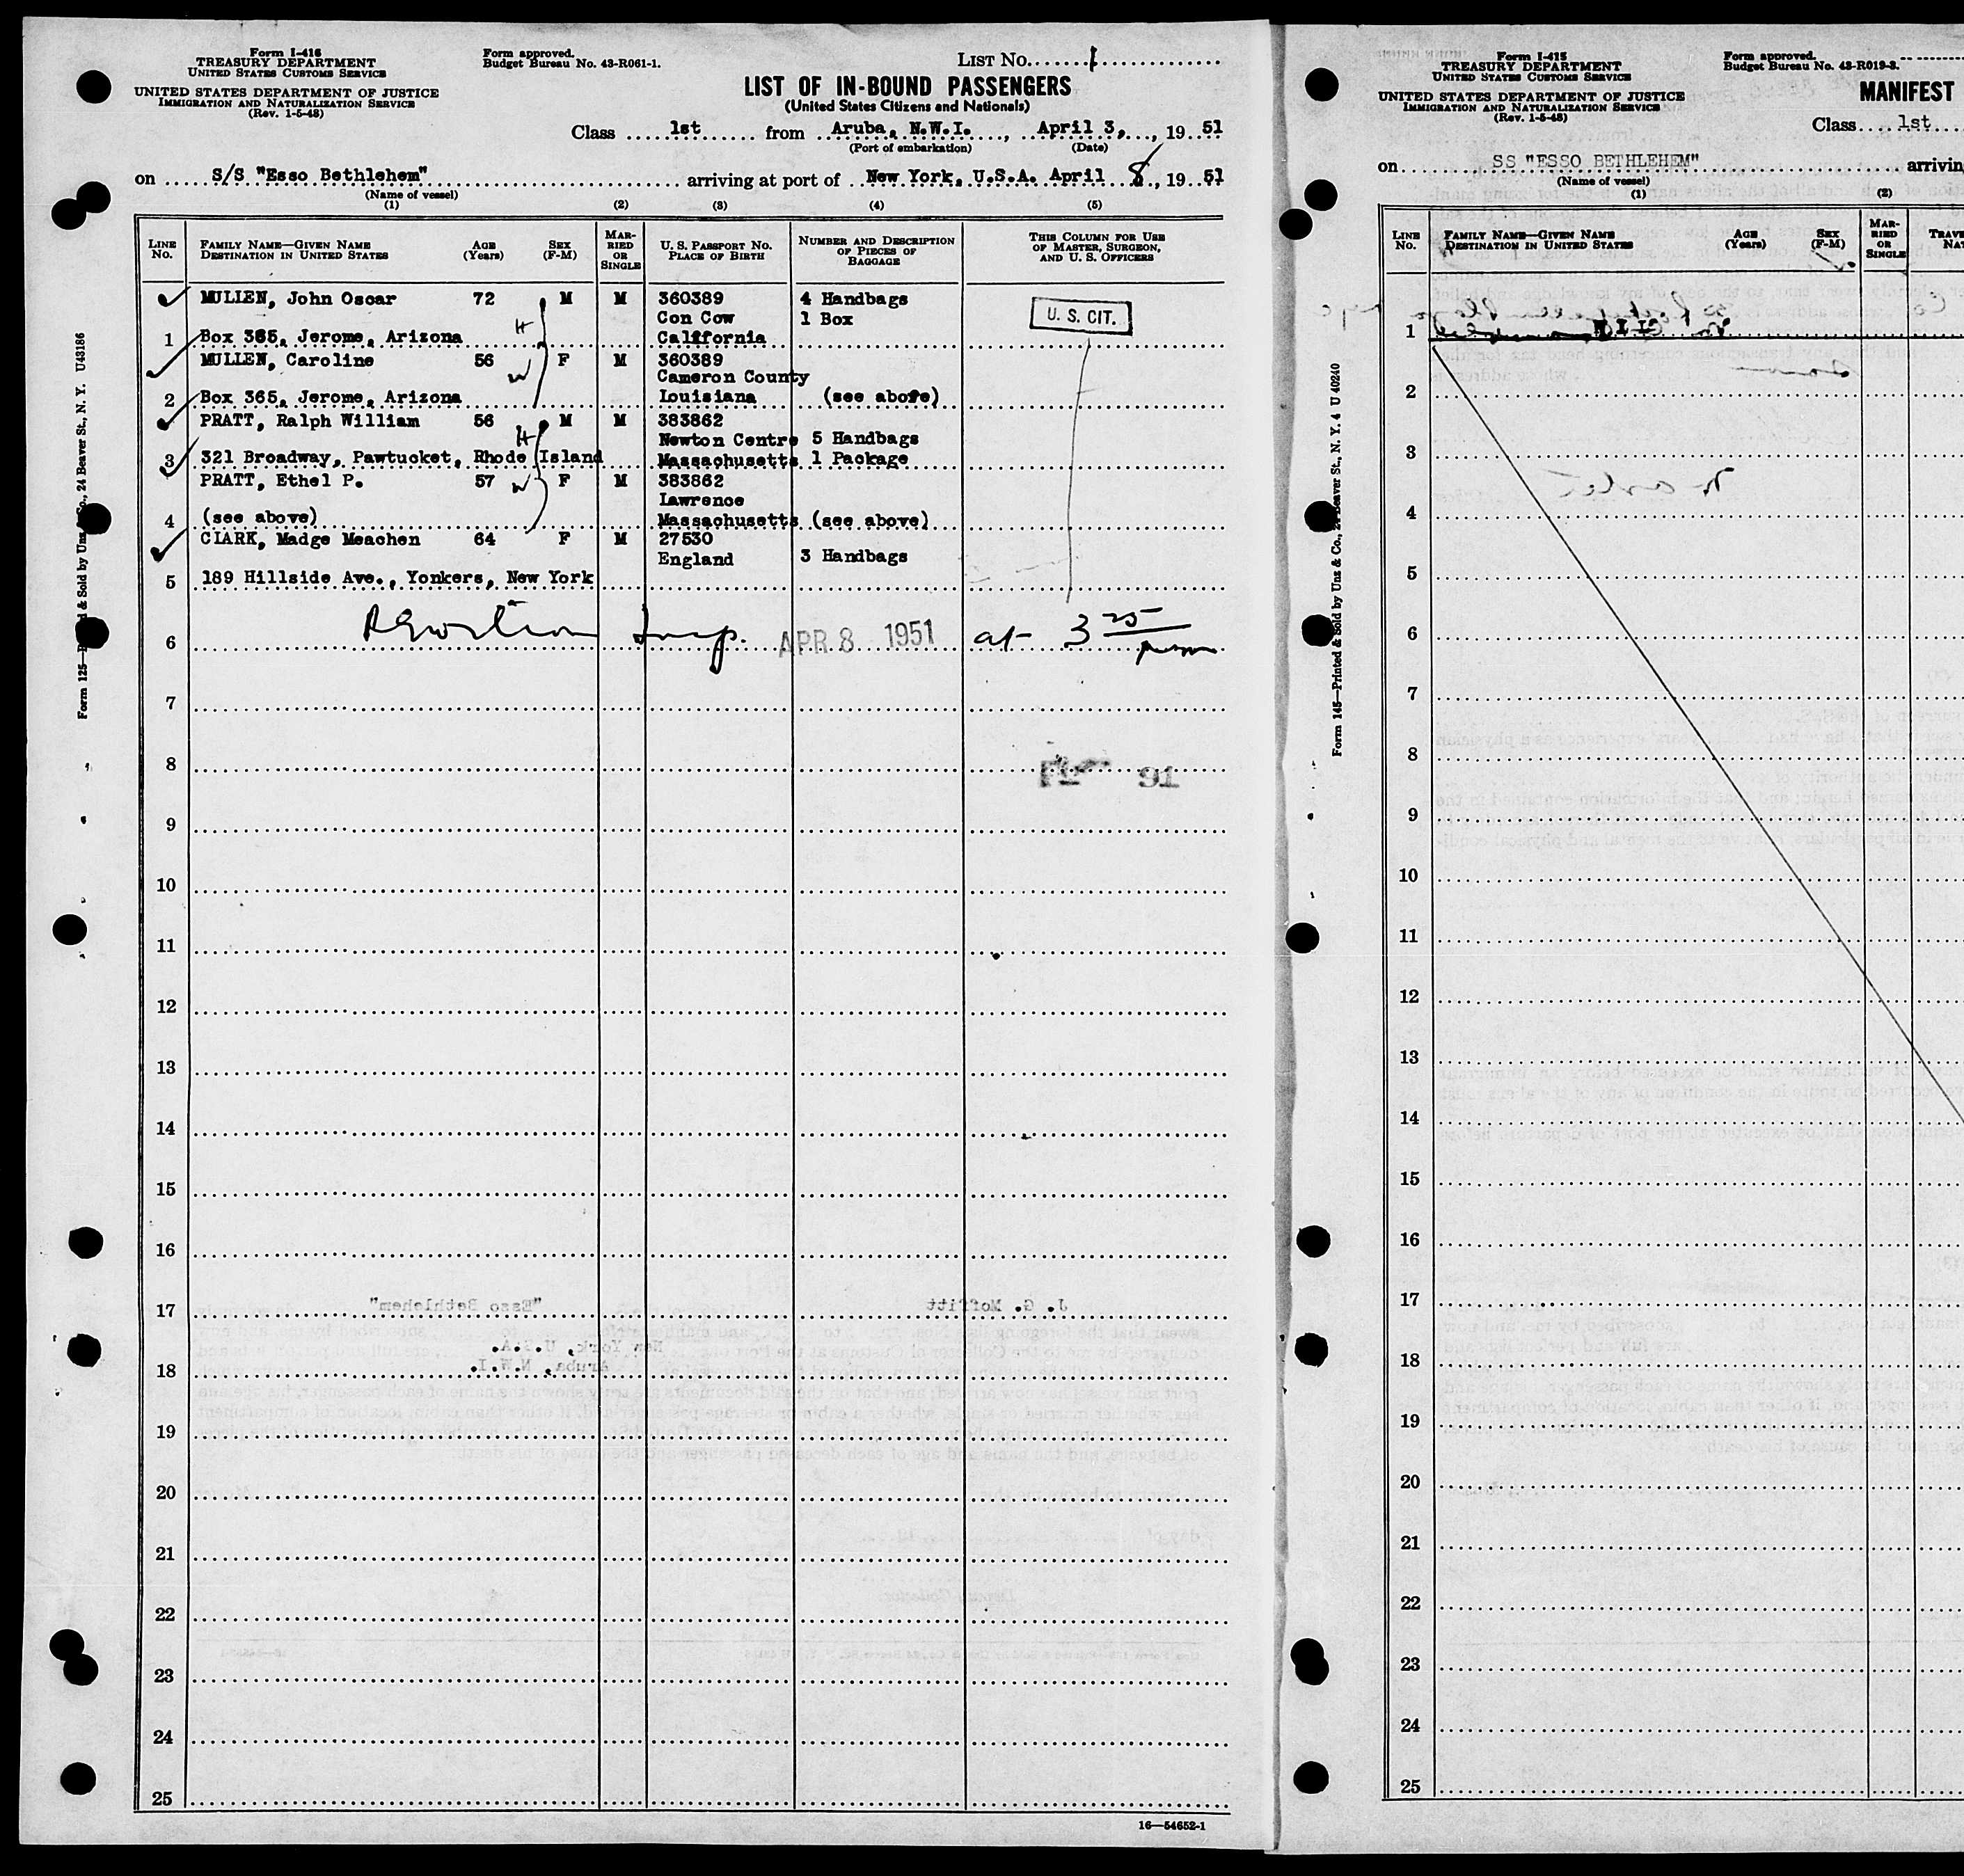 Form I-416
TREASURY DEPARTMENT
UNITED STATES CUSTOMS SERVICE
UNITED STATES DEPARTMENT OF JUSTICE
IMMIGRATION AND NATURALIZATION SERVICE
(Rev. 1-5-48)
Form approved.
Budget Bureau No. 43-R061-1.
LIST NO. 1
LIST OF IN-BOUND PASSENGERS
(United States Citizens and Nationals)
Class 1st from Aruba, N.W.I., April 3, 19 51
(Port of embarkation) (Date)
on S/S "Esso Bethlehem" arriving at port of New York, U.S.A. April 8, 19 51
(Name of vessel)
(1) (2) (3) (4) (5)
LINE NO.
FAMILY NAME—GIVEN NAME
DESTINATION IN UNITED STATES
AGE (Years)
SEX (F-M)
MARRIED OR SINGLE
U. S. PASSPORT NO.
PLACE OF BIRTH
NUMBER AND DESCRIPTION OF PIECES OF BAGGAGE
THIS COLUMN FOR USE OF MASTER, SURGEON, AND U. S. OFFICERS
MULLEN, John Oscar 72 M M 360389 4 Handbags
H Con Cow 1 Box U. S. CIT.
1 Box 365, Jerome, Arizona California
MULLEN, Caroline 56 F M 360389
W Cameron County
2 Box 365, Jerome, Arizona Louisiana (see above)
PRATT, Ralph William 56 M M 383862
H Newton Centre 5 Handbags
3 321 Broadway, Pawtucket, Rhode Island Massachusetts 1 Package
PRATT, Ethel P. 57 W F M 383862
Lawrence
4 (see above) Massachusetts (see above)
CLARK, Madge Meachen 64 F M 27530
England 3 Handbags
5 189 Hillside Ave., Yonkers, New York
6 Insp. APR 8 1951 at 3 25 pm
7
8
91
9
10
11
12
13
14
15
16
17
"Esso Bethlehem" J. G. Moffitt
New York, U.S.A.
18
Aruba, N.W.I.
19
20
21
22
23
24
25
16—54652-1
Form 125—Printed & Sold by Unz & Co., 24 Beaver St., N. Y. U43186
Form I-415
TREASURY DEPARTMENT
UNITED STATES CUSTOMS SERVICE
UNITED STATES DEPARTMENT OF JUSTICE
IMMIGRATION AND NATURALIZATION SERVICE
(Rev. 1-5-48)
Form approved.
Budget Bureau No. 43-R019-3.
MANIFEST
Class 1st
on SS "ESSO BETHLEHEM" arriving
(Name of vessel)
(1) (2)
LINE NO.
FAMILY NAME—GIVEN NAME
DESTINATION IN UNITED STATES
AGE (Years)
SEX (F-M)
MARRIED OR SINGLE
TRAVE
NAT
1
2
3
4
5
6
7
8
9
10
11
12
13
14
15
16
17
18
19
20
21
22
23
24
25
Form 145—Printed & Sold by Unz & Co., 24 Beaver St., N. Y. 4 U 40240